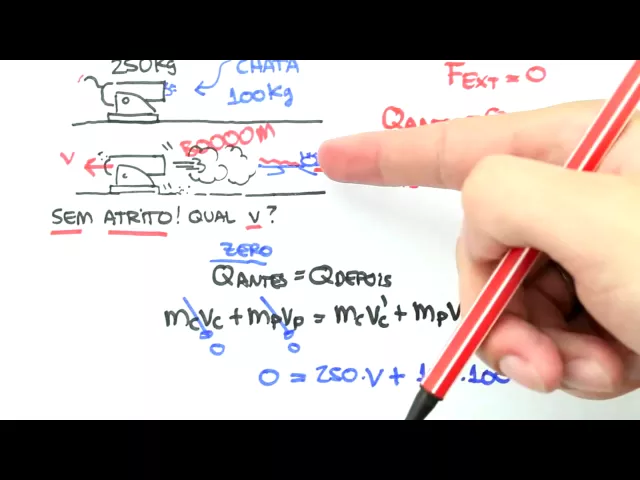 250Kg
CHATA
100Kg
FEXT = 0
BOOOOM
V
SEM ATRITO! QUAL V?
ZERO
QANTES = QDEPOIS
mcVc + mpVp = mcVc' + mpV
0 0
0 = 250.V + 1 .100